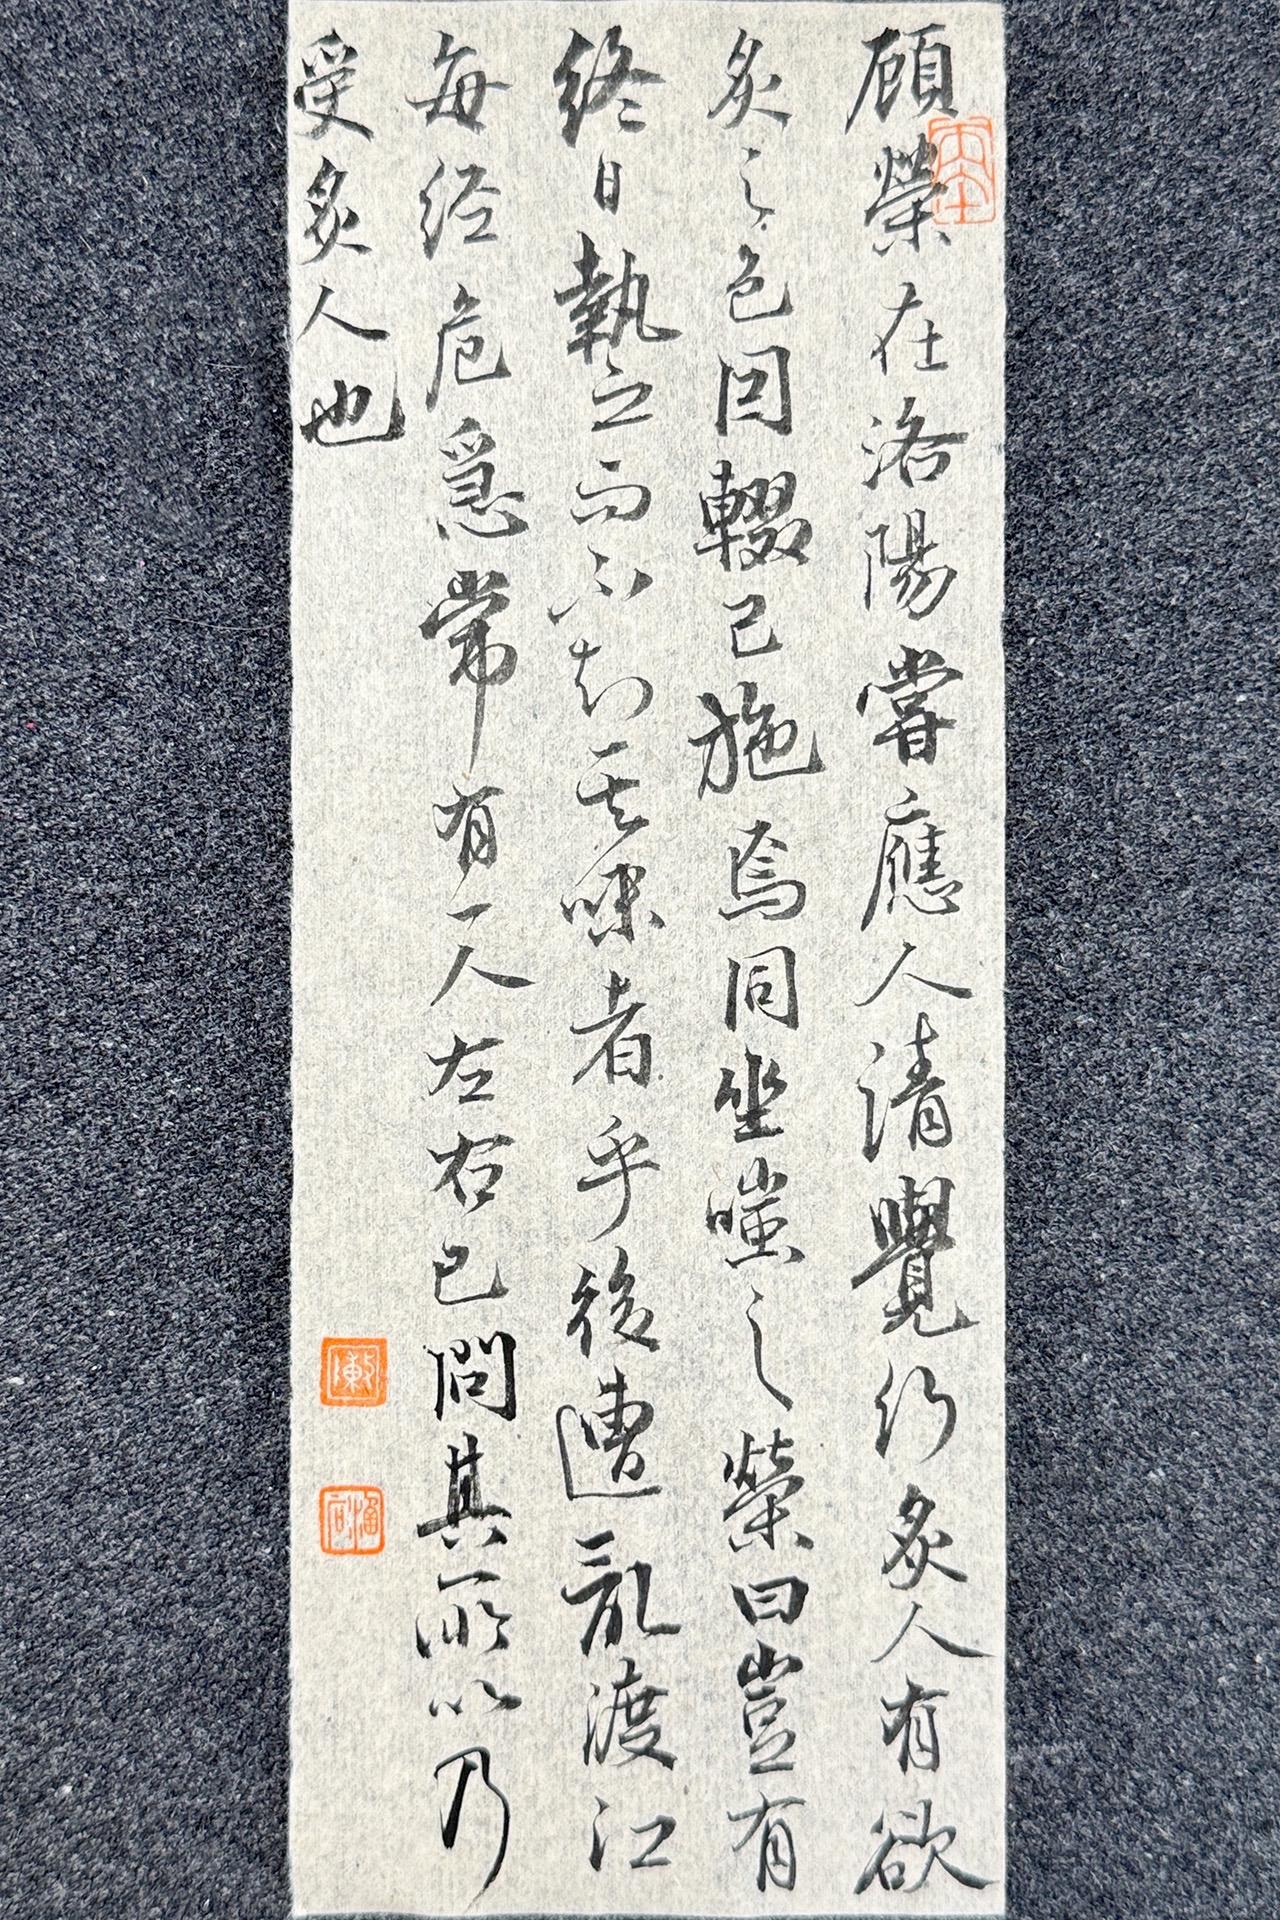 顾榮在洛陽嘗應人请覺行炙人有欲
炙之色因輟己施焉同坐嗤之榮曰豈有
終日執之而不知其味者乎後遭亂渡江
每经危急常有一人左右已問其所以乃
受炙人也